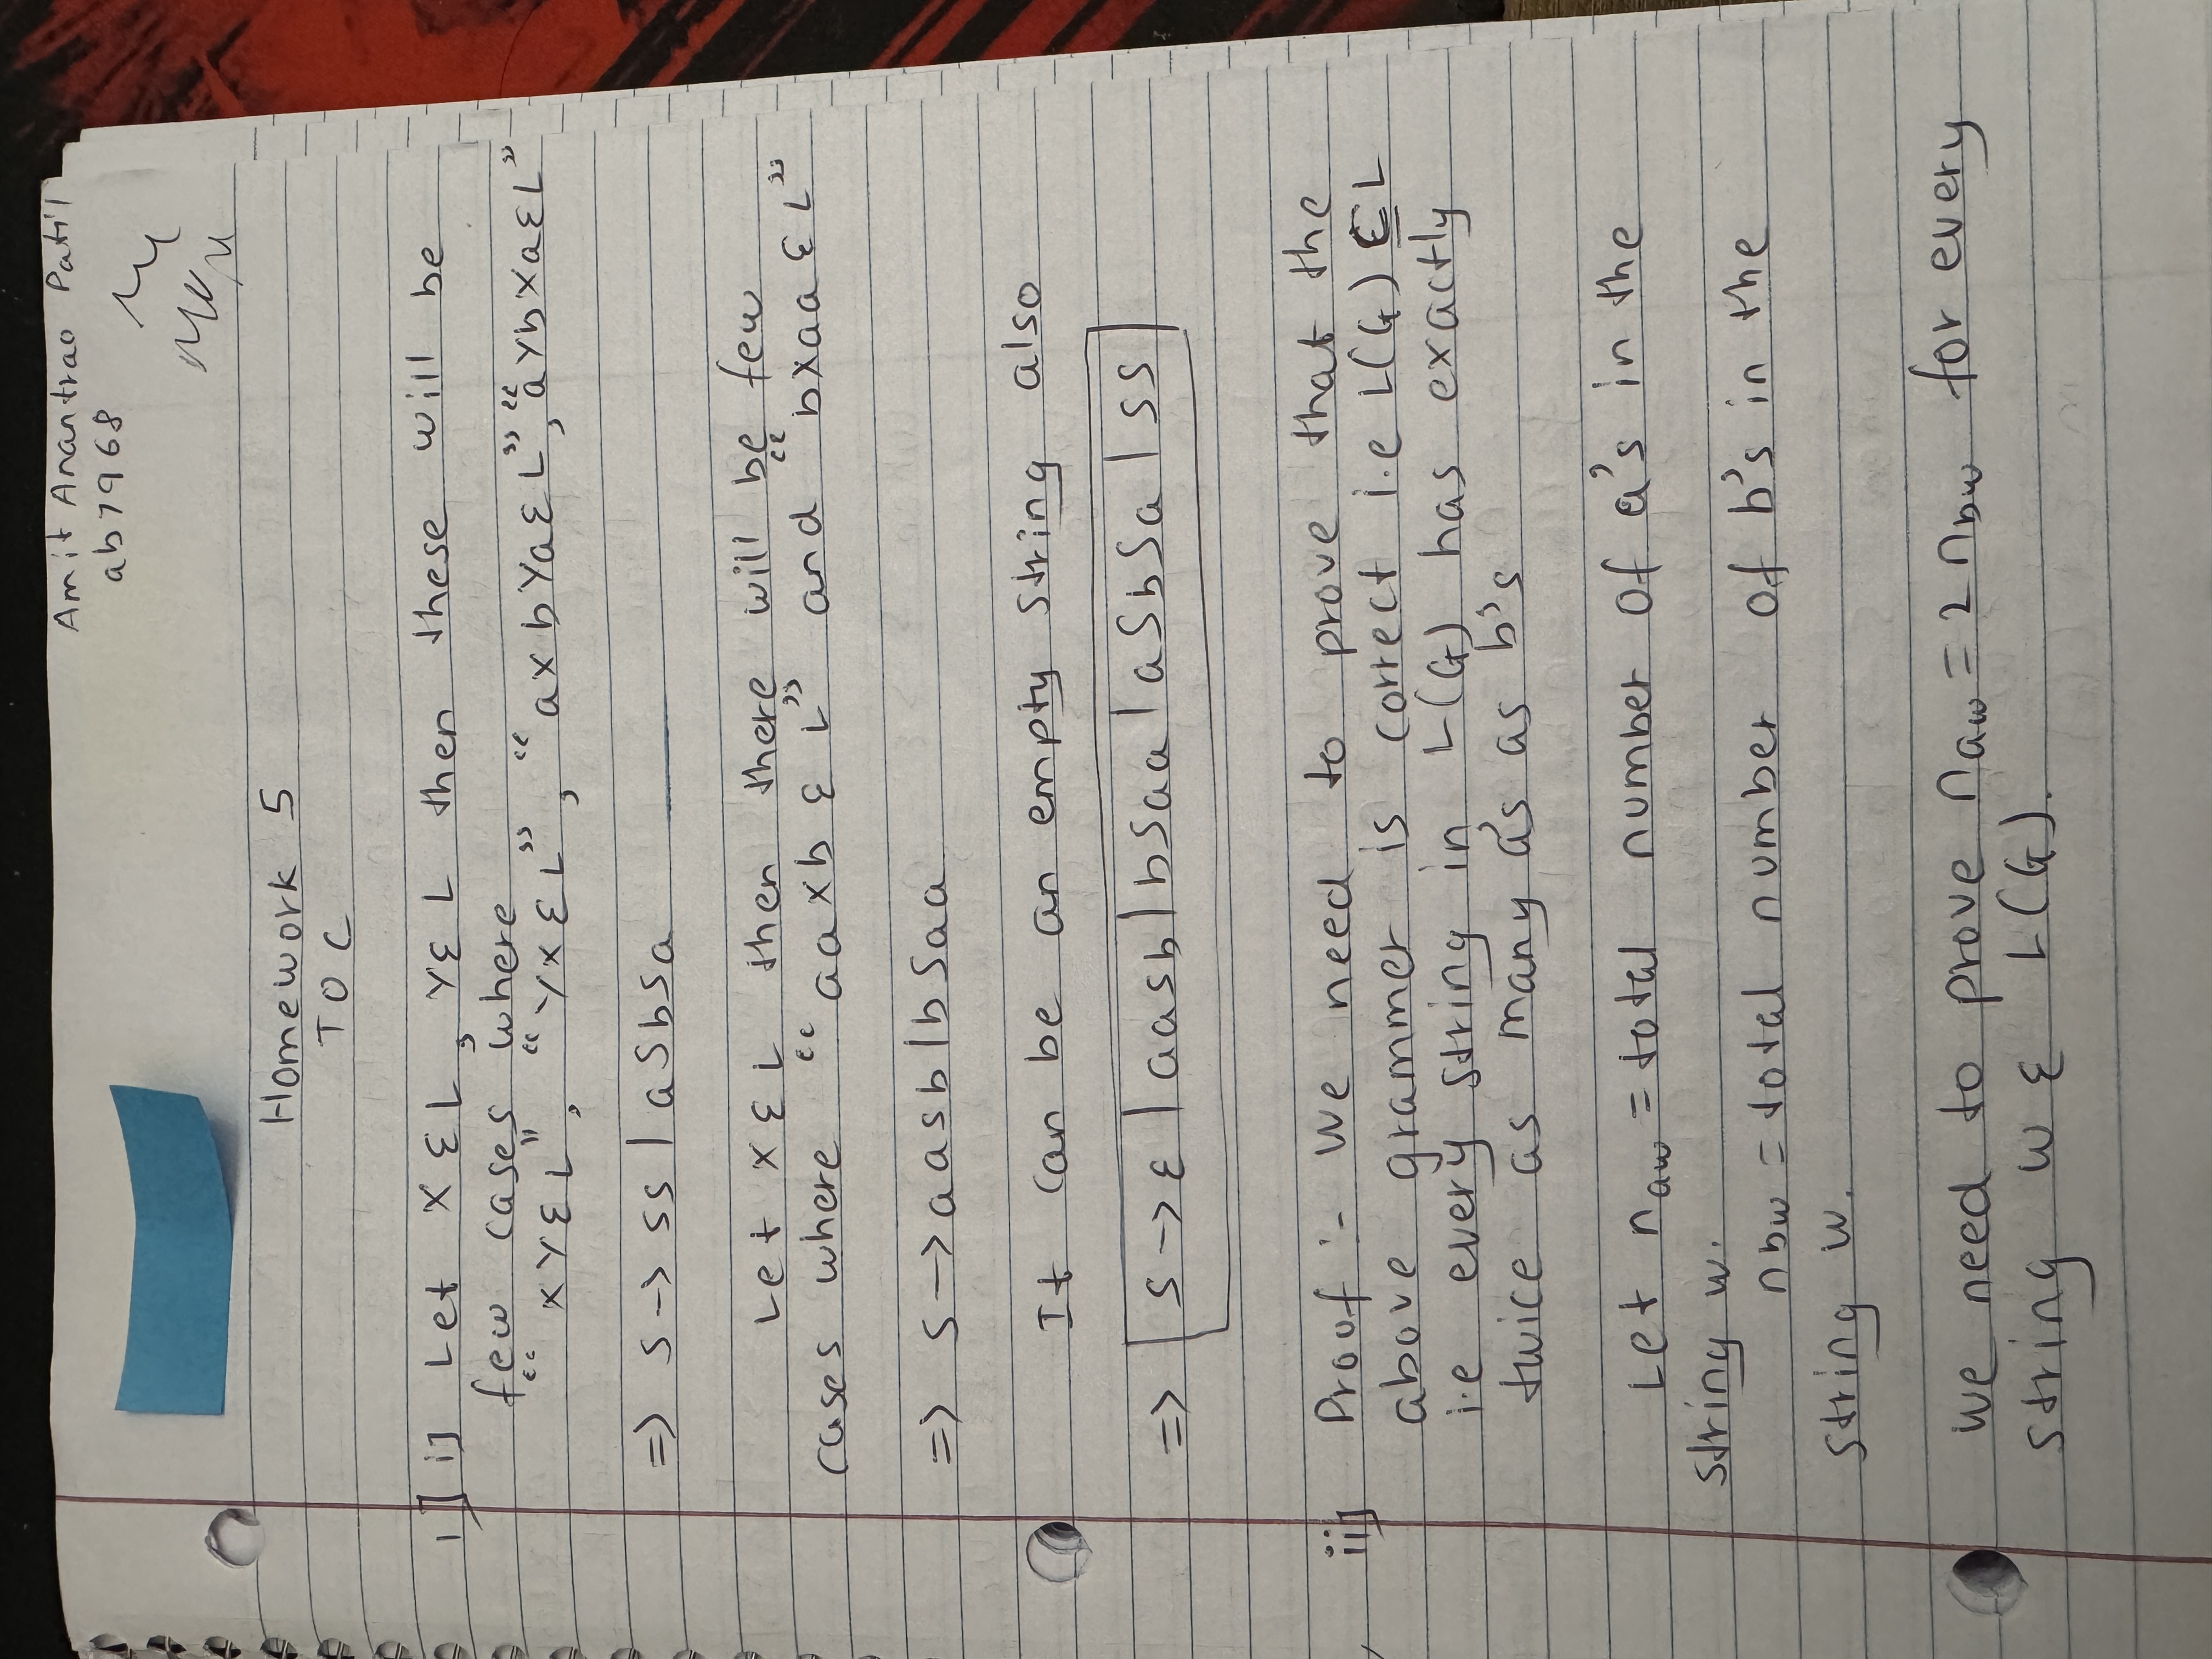 Amit Anantrao Patil
ab7968
Homework 5
TOC
1] i] Let X ε L, Y ε L then these will be
few cases where
“XY ε L”, “YX ε L”, “aXbYa ε L”, “aYbXa ε L”
=> S -> SS | aSbSa
Let X ε L then there will be few
cases where “aaXb ε L” and “bXaa ε L”
=> S -> aaSb | bSaa
It can be an empty string also
=> S -> ε | aaSb | bSaa | aSbSa | SS
ii] Proof :- We need to prove that the
above grammer is correct i.e L(G) ⊆ L
i.e every string in L(G) has exactly
twice as many a's as b's
Let naw = total number of a's in the
string w.
nbw = total number of b's in the
string w.
We need to prove naw = 2 nbw for every
string w ε L(G).